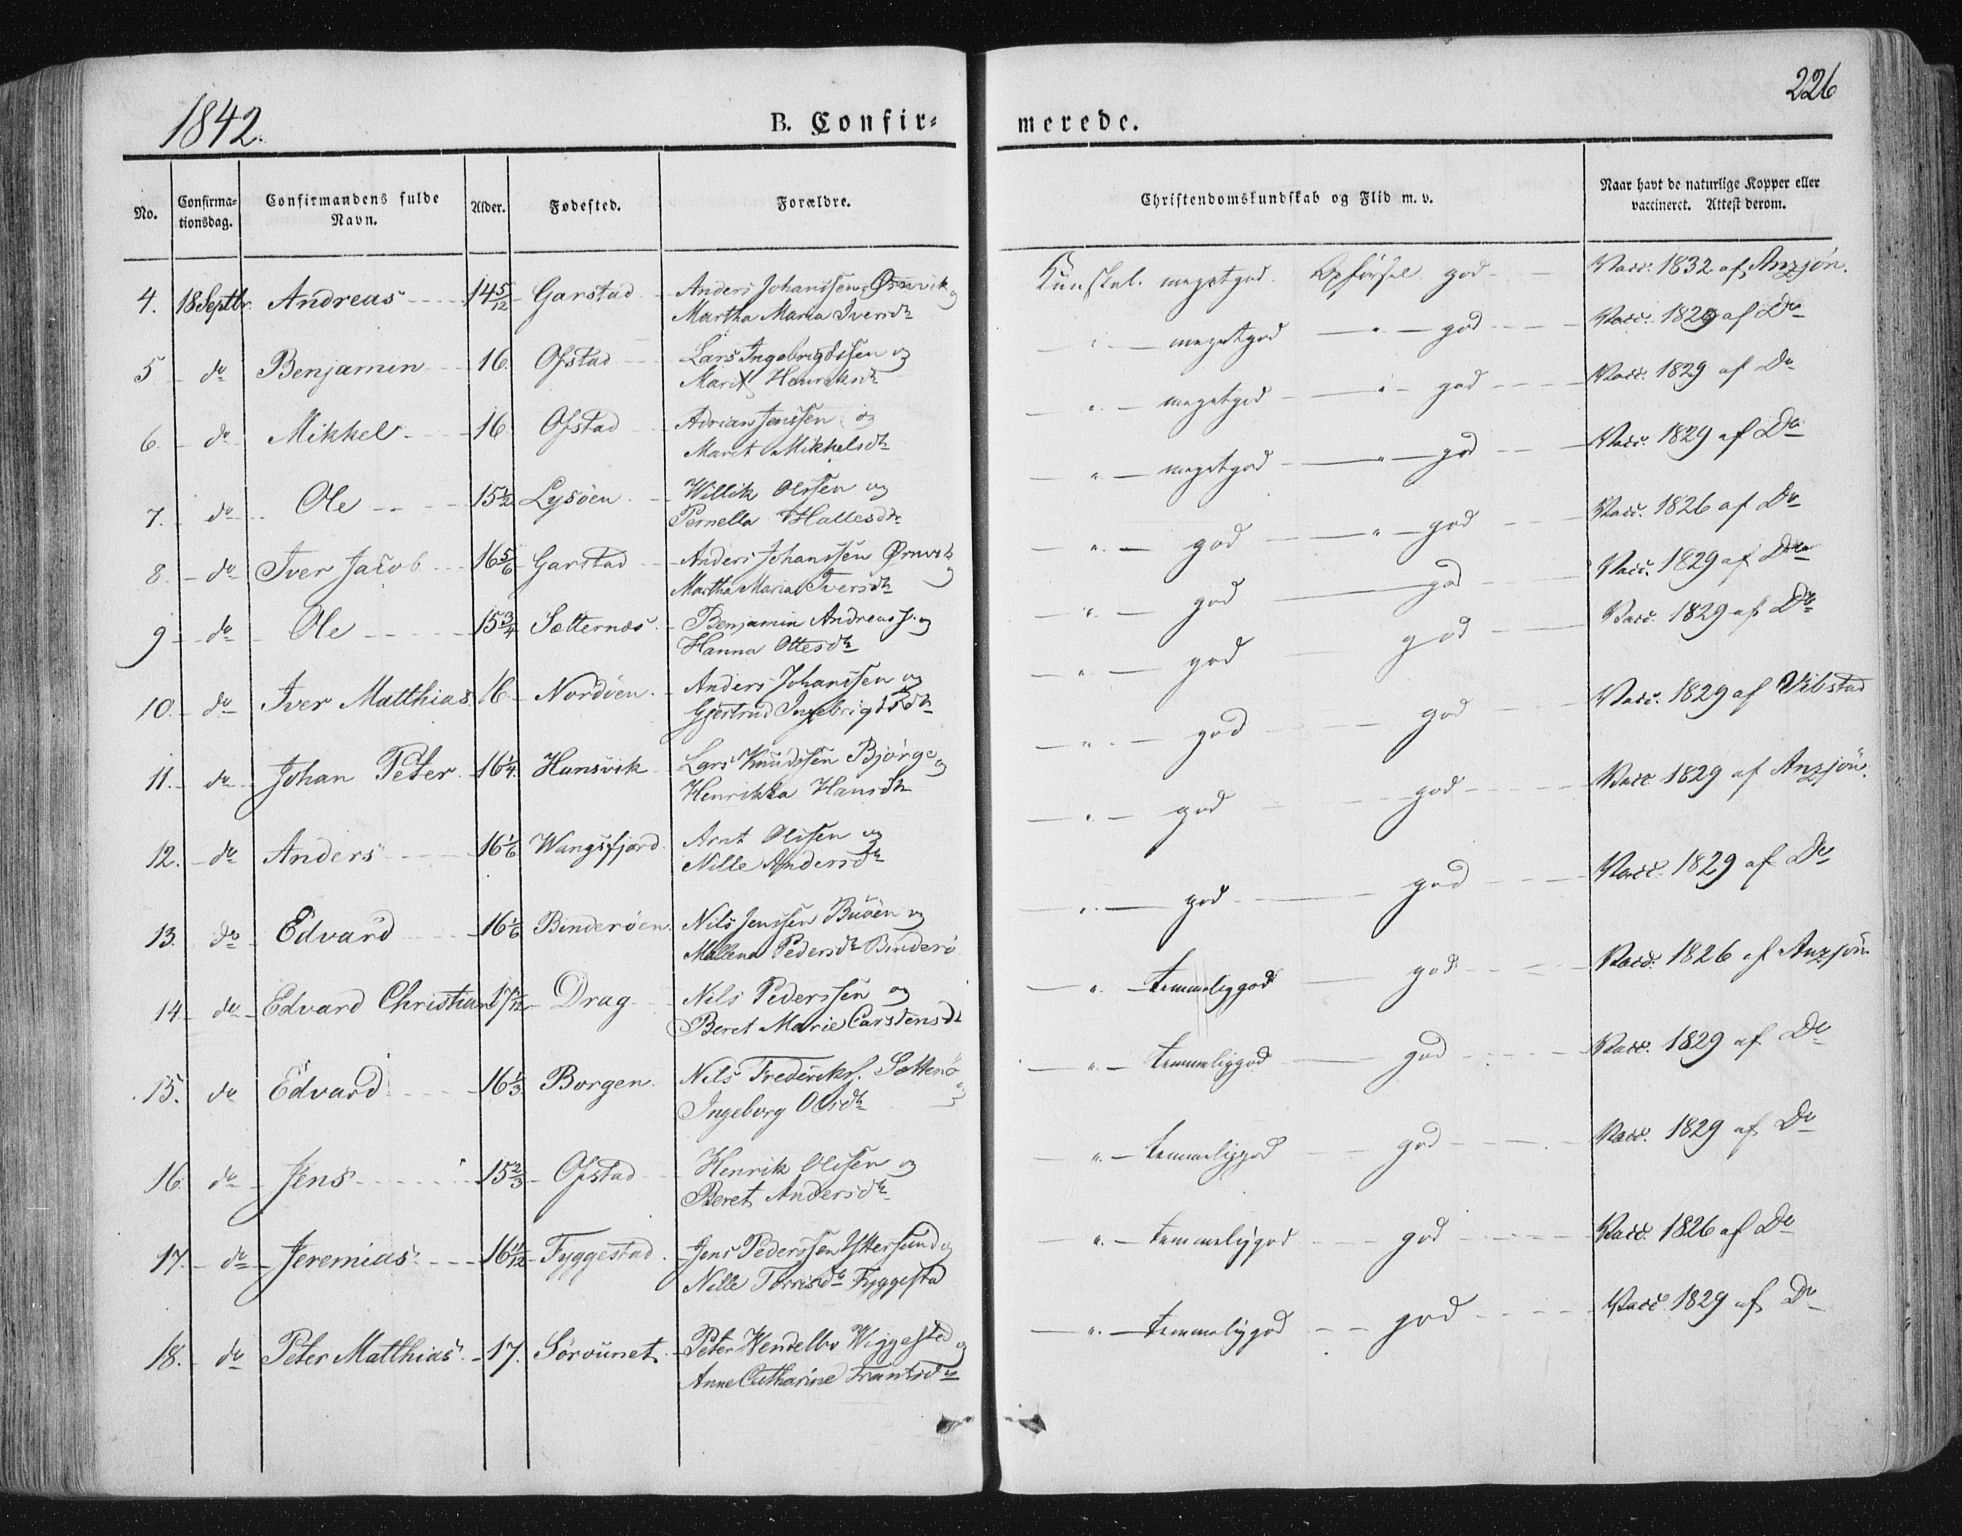 1842.
B. Confir-
merede.
226
No.
Confirma-
tionsdag.
Confirmandens fulde
Navn.
Alder.
Fødested.
Forældre.
Christendomskundskab og Flid m. v.
Naar havt de naturlige Kopper eller
vaccineret. Attest derom.
4. 18 Septbr. Andreas 14 5/12 Garstad Anders Johanssen Ørnvik og
Martha Maria Iversdr
Kunskab. megetgod Opførsel god Vacc. 1832 af Anzjøn.
5 do Benjamin 16. Ofstad Lars Ingebrigtssen og
Marit Henriksdr
" megetgod " god Vacc. 1829 af Do
6. do Mikkel 16. Ofstad Adrian Jenssen og
Marit Mikkelsdr
" megetgod " god Vacc. 1829 af Do
7. do Ole 15 1/2 Lysøen Willik Olssen og
Pernella Hallesdr
" megetgod " god Vacc. 1829 af Do
8. do Iver Jacob 16 5/6 Garstad Anders Johanssen Ørnvik og
Martha Maria Iversdr
" god " god Vacc. 1826 af Do
9 do Ole 15 3/4 Sætternæs Benjamin Andreass. og
Hanna Ottesdr
" god god Vacc. 1829 af Do
10. do Iver Matthias 16 Nordøen Anders Johanssen og
Gjertrud Ingebrigtsdr
" god god Vacc. 1829 af Do
11. do Johan Peter 16 1/4 Hansvik Lars Knudssen Bjørge og
Henrikka Hansdr
" god god Vacc. 1829 af Vibstad
12. do Anders 16 1/6 Wangsfjord Arnt Olssen og
Nille Andersdr
" god god Vacc. 1829 af Anzjøn.
13. do Edvard 16 1/6 Binderøen Nils Jenssen Buøen og
Mallena Pedersdr Binderø
" god god Vacc. 1829 af Do
14 do Edvard Christian 17 Drag Nils Pederssen og
Beret Marie Carstensdr
" temmeliggod god Vacc. 1826 af Anzjøn
15. do Edvard 16 1/3 Borgen Nils Frederiks. Sætterø og
Ingeborg Olsdr
" temmeliggod god Vacc. 1829 af Do
16. do Jens 15 2/3 Ofstad Henrik Olssen og
Beret Andersdr
" temmeliggod god Vacc. 1829 af Do
17. do Jeremias 16 11/12 Fyggestad Jens Pederssen Yttersund og
Nille Torrisdr Fyggesta
" temmeliggod god Vacc. 1826 af Do
18. do Peter Matthias 17. Sørøunet Peter Wendelbo Wiggested og
Anne Catharine Frantsdr
" temmeliggod god Vacc. 1829 af Do